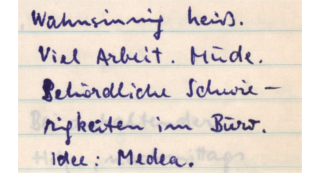 Wahnsinnig heiß.
Viel Arbeit. Müde.
Behördliche Schwie-
rigkeiten im Büro.
Idee: Medea.